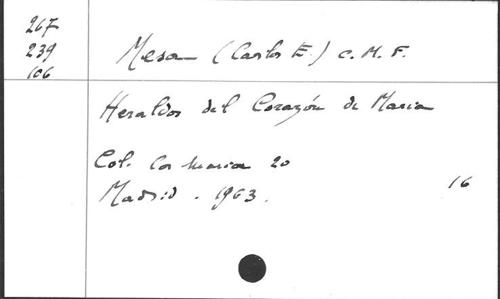 267
239
106
Mesa (Carlos E.) C. M. F.
Heraldos del Corazón de Maria
Col. Cor Mariae 20
Madrid. 1963.
16